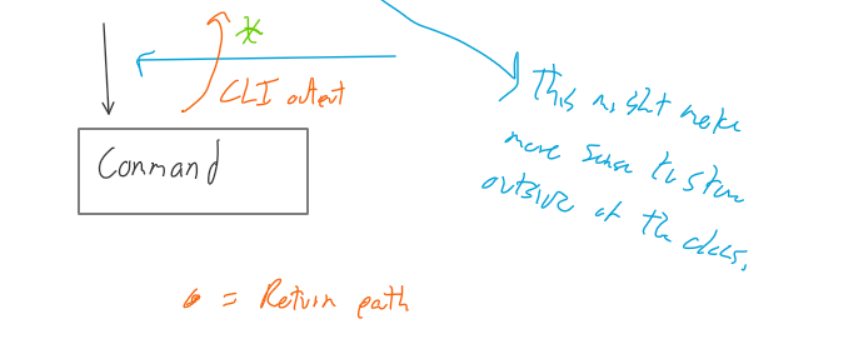 *
CLI output
This might make
more sense to store
outside of the class.
Command
= Return path